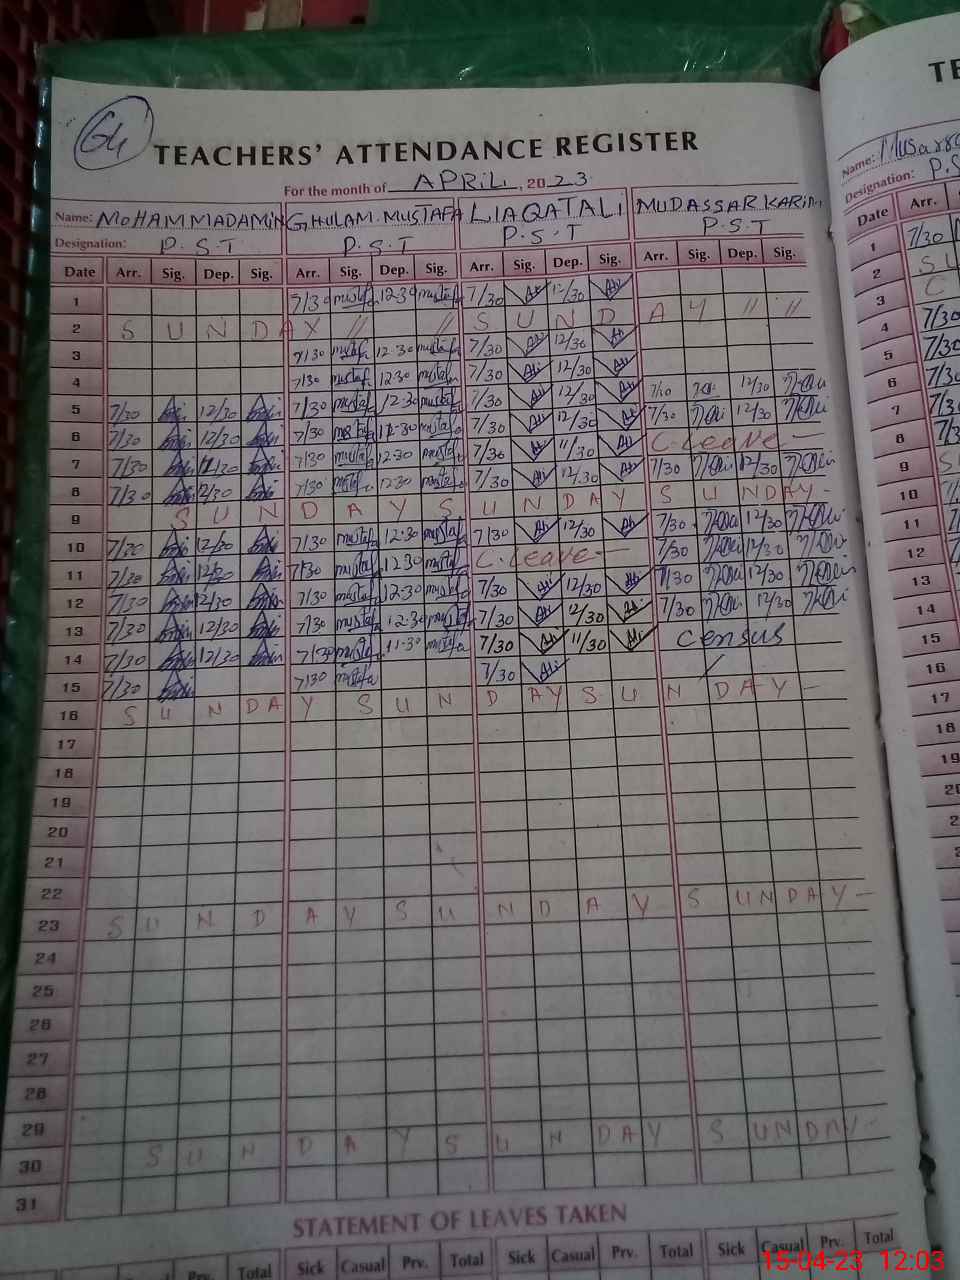 Gu
TEACHERS' ATTENDANCE REGISTER
For the month of APRIL, 2023
Name: MOHAMMADAMIN GHULAM. MUSTAFA LIAQATALI MUDASSAR KARIM
Designation: P.S.T P.S.T P.S.T P.S.T
Date Arr. Sig. Dep. Sig. Arr. Sig. Dep. Sig. Arr. Sig. Dep. Sig. Arr. Sig. Dep. Sig.
1 7/30 mustafa 12-30 mustafa 7/30 Ali 12/30 Ali
2 SUNDAY // // SUNDAY // //
3 7/30 mustafa 12.30 mustafa 7/30 Ali 12/30 Ali
4 7/30 mustafa 12.30 mustafa 7/30 Ali 12/30 Ali
5 7/30 12/30 7/30 mustafa 12-30 mustafa 7/30 Ali 12/30 Ali 7/30 12/30
6 7/30 12/30 7/30 mustafa 12-30 mustafa 7/30 Ali 12/30 Ali 7/30 12/30
7 7/30 12/30 7/30 mustafa 12.30 mustafa 7/30 Ali 11/30 Ali C-Leave -
8 7/30 12/30 7/30 mustafa 12.30 mustafa 7/30 Ali 12/30 Ali 7/30 12/30
9 SUNDAY SUNDAY SUNDAY -
10 7/30 12/30 7/30 mustafa 12.30 mustafa 7/30 Ali 12/30 Ali 7/30 12/30
11 7/30 12/30 7/30 mustafa 12.30 mustafa C.Leave - 7/30 12/30
12 7/30 12/30 7/30 mustafa 12-30 mustafa 7/30 Ali 12/30 Ali 7/30 12/30
13 7/30 12/30 7/30 mustafa 12.30 mustafa 7/30 Ali 12/30 Ali 7/30 12/30
14 7/30 12/30 7/30 mustafa 11.30 mustafa 7/30 Ali 11/30 Ali census
15 7/30 7/30 mustafa 7/30 Ali /
16 SUNDAY SUNDAY SUNDAY -
17
18
19
20
21
22
23 SUNDAY SUNDAY SUNDAY -
24
25
26
27
28
29
30 SUNDAY SUNDAY SUNDAY -
31
STATEMENT OF LEAVES TAKEN
Total Sick Casual Prv. Total Sick Casual Prv. Total Sick Casual Prv. Total
Name:
Designation: P.S
Date Arr.
1 7/30
2 SU
3 C
4 7/30
5 7/30
6 7/30
7
8
9
10
11
12
13
14
15
16
17
18
19
15-04-23 12:03